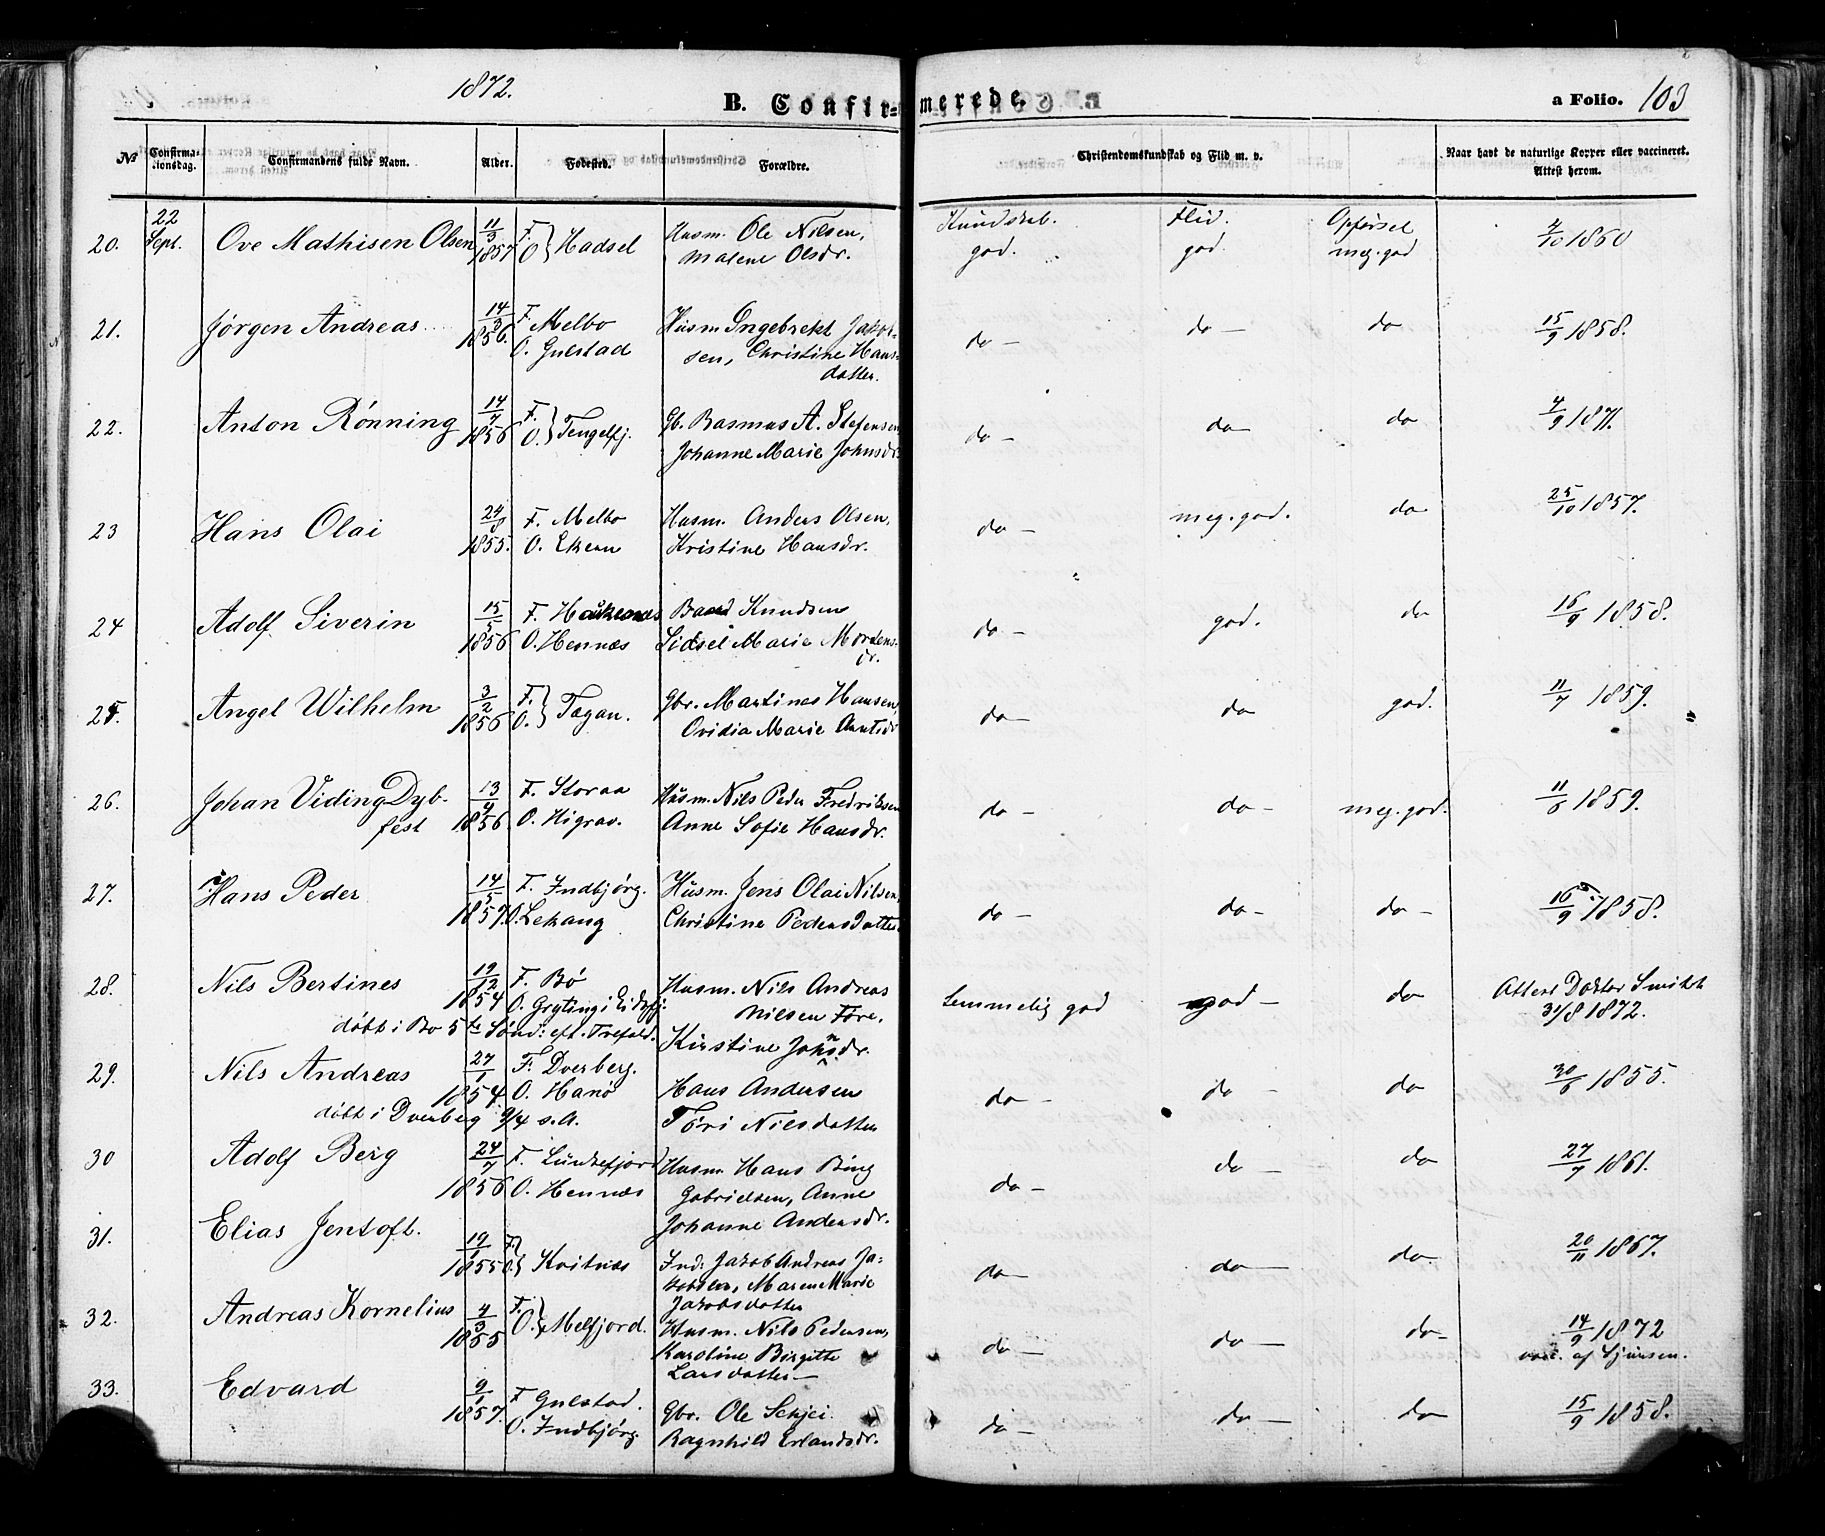 1872.
B. Confir= merede.
a Folio. 103
No Confirma-tionsdag. Confirmandens fulde Navn. Alder. Fødested. Forældre. Christendomskundskab og Flid m. v. Naar havt de naturlige Kopper eller vaccineret. Attest herom.
Kundskab. Flid. Opførsel
20. 22 Sept. Ove Mathisen Olsen 11/3 1857 F. O. } Hadsel Husm. Ole Nilsen, Malene Olsdr. god. god. meg. god 4/10 1860
21. Jørgen Andreas 14/3 1856. F. Melbo O. Gulstad Husm Ingebrekt Jakob-
sen, Christine Hans-
datter. do - do - do 15/9 1858.
22. Anton Rønning 14/7 1856 F. O. } Tengelfj. Gb. Rasmus A. Stefensen
Johanne Marie Johnsdr. do - do - do 4/9 1871.
23 Hans Olai 24/8 1855. F. Melbo O. Ekern Husm. Anders Olsen,
Kristine Hansdr. do - meg. god. do 25/10 1857.
24 Adolf Siverin 15/5 1856 F. Haukenæs O. Hennæs Baard Knudsen
Sidsel Marie Mortens-
dr. do - god. do 16/9 1858.
25. Angel Wilhelm 3/2 1856 F. O. } Tægan. Gbr. Martines Hansen,
Ovidia Marie Arntsdr do - do god. 11/7 1859.
26. Johan Viding Dyb-
fest 13/4 1856. F. Storaa O. Higrav. Husm. Nils Peder Fredriksen
Anne Sofie Hansdr. do - do - meg. god. 11/6 1859.
27. Hans Peder 14/5 1857. F. Indbjørg. O. Lekang Husm. Jens Olai Nilsen,
Christine Pedersdatter do - do - do - 16/9 1858.
28. Nils Bertines 19/12 1854 F. Bø O. Grytting i Eidsfj.
døbt i Bø 5te Sønd: eft. Trefold. Husm. Nils Andreas
Nilsen Føre,
Kirstine Johnsdr. temmelig god god - do Attest Doktor Smith
31/8 1872.
29. Nils Andreas 27/1 1854 F. Dverberg. O. Hanø
døbt i Dverberg 9/4 s. A. Hans Andersen
Tøri Nilsdatter do - do - do 30/6 1855.
30 Adolf Berg 24/7 1856 F. Lundefjord O. Hennæs Husm Hans Bing
Gabrielsen, Anne
Johanne Andersdr. do - do - do 27/7 1861.
31. Elias Jentoft. 19/1 1855 F. O. } Kvitnæs Ind: Jakob Andreas Ja-
kobsen, Maren Marie
Jakobsdatter do - do - do. 20/11 1867.
32. Andreas Kornelius 4/3 1855 F. O. } Melfjord. Husm. Nils Pedersen,
Karoline Birgitte
Larsdatter - do - do - do - 14/9 1872
vacc. af Sjursen.
33. Edvard 9/1 1857. F. Gulstad. O. Indbjørg. Gbr. Ole Schjei.
Ragnhild Erlandsdr. do - do - do 15/9 1858.